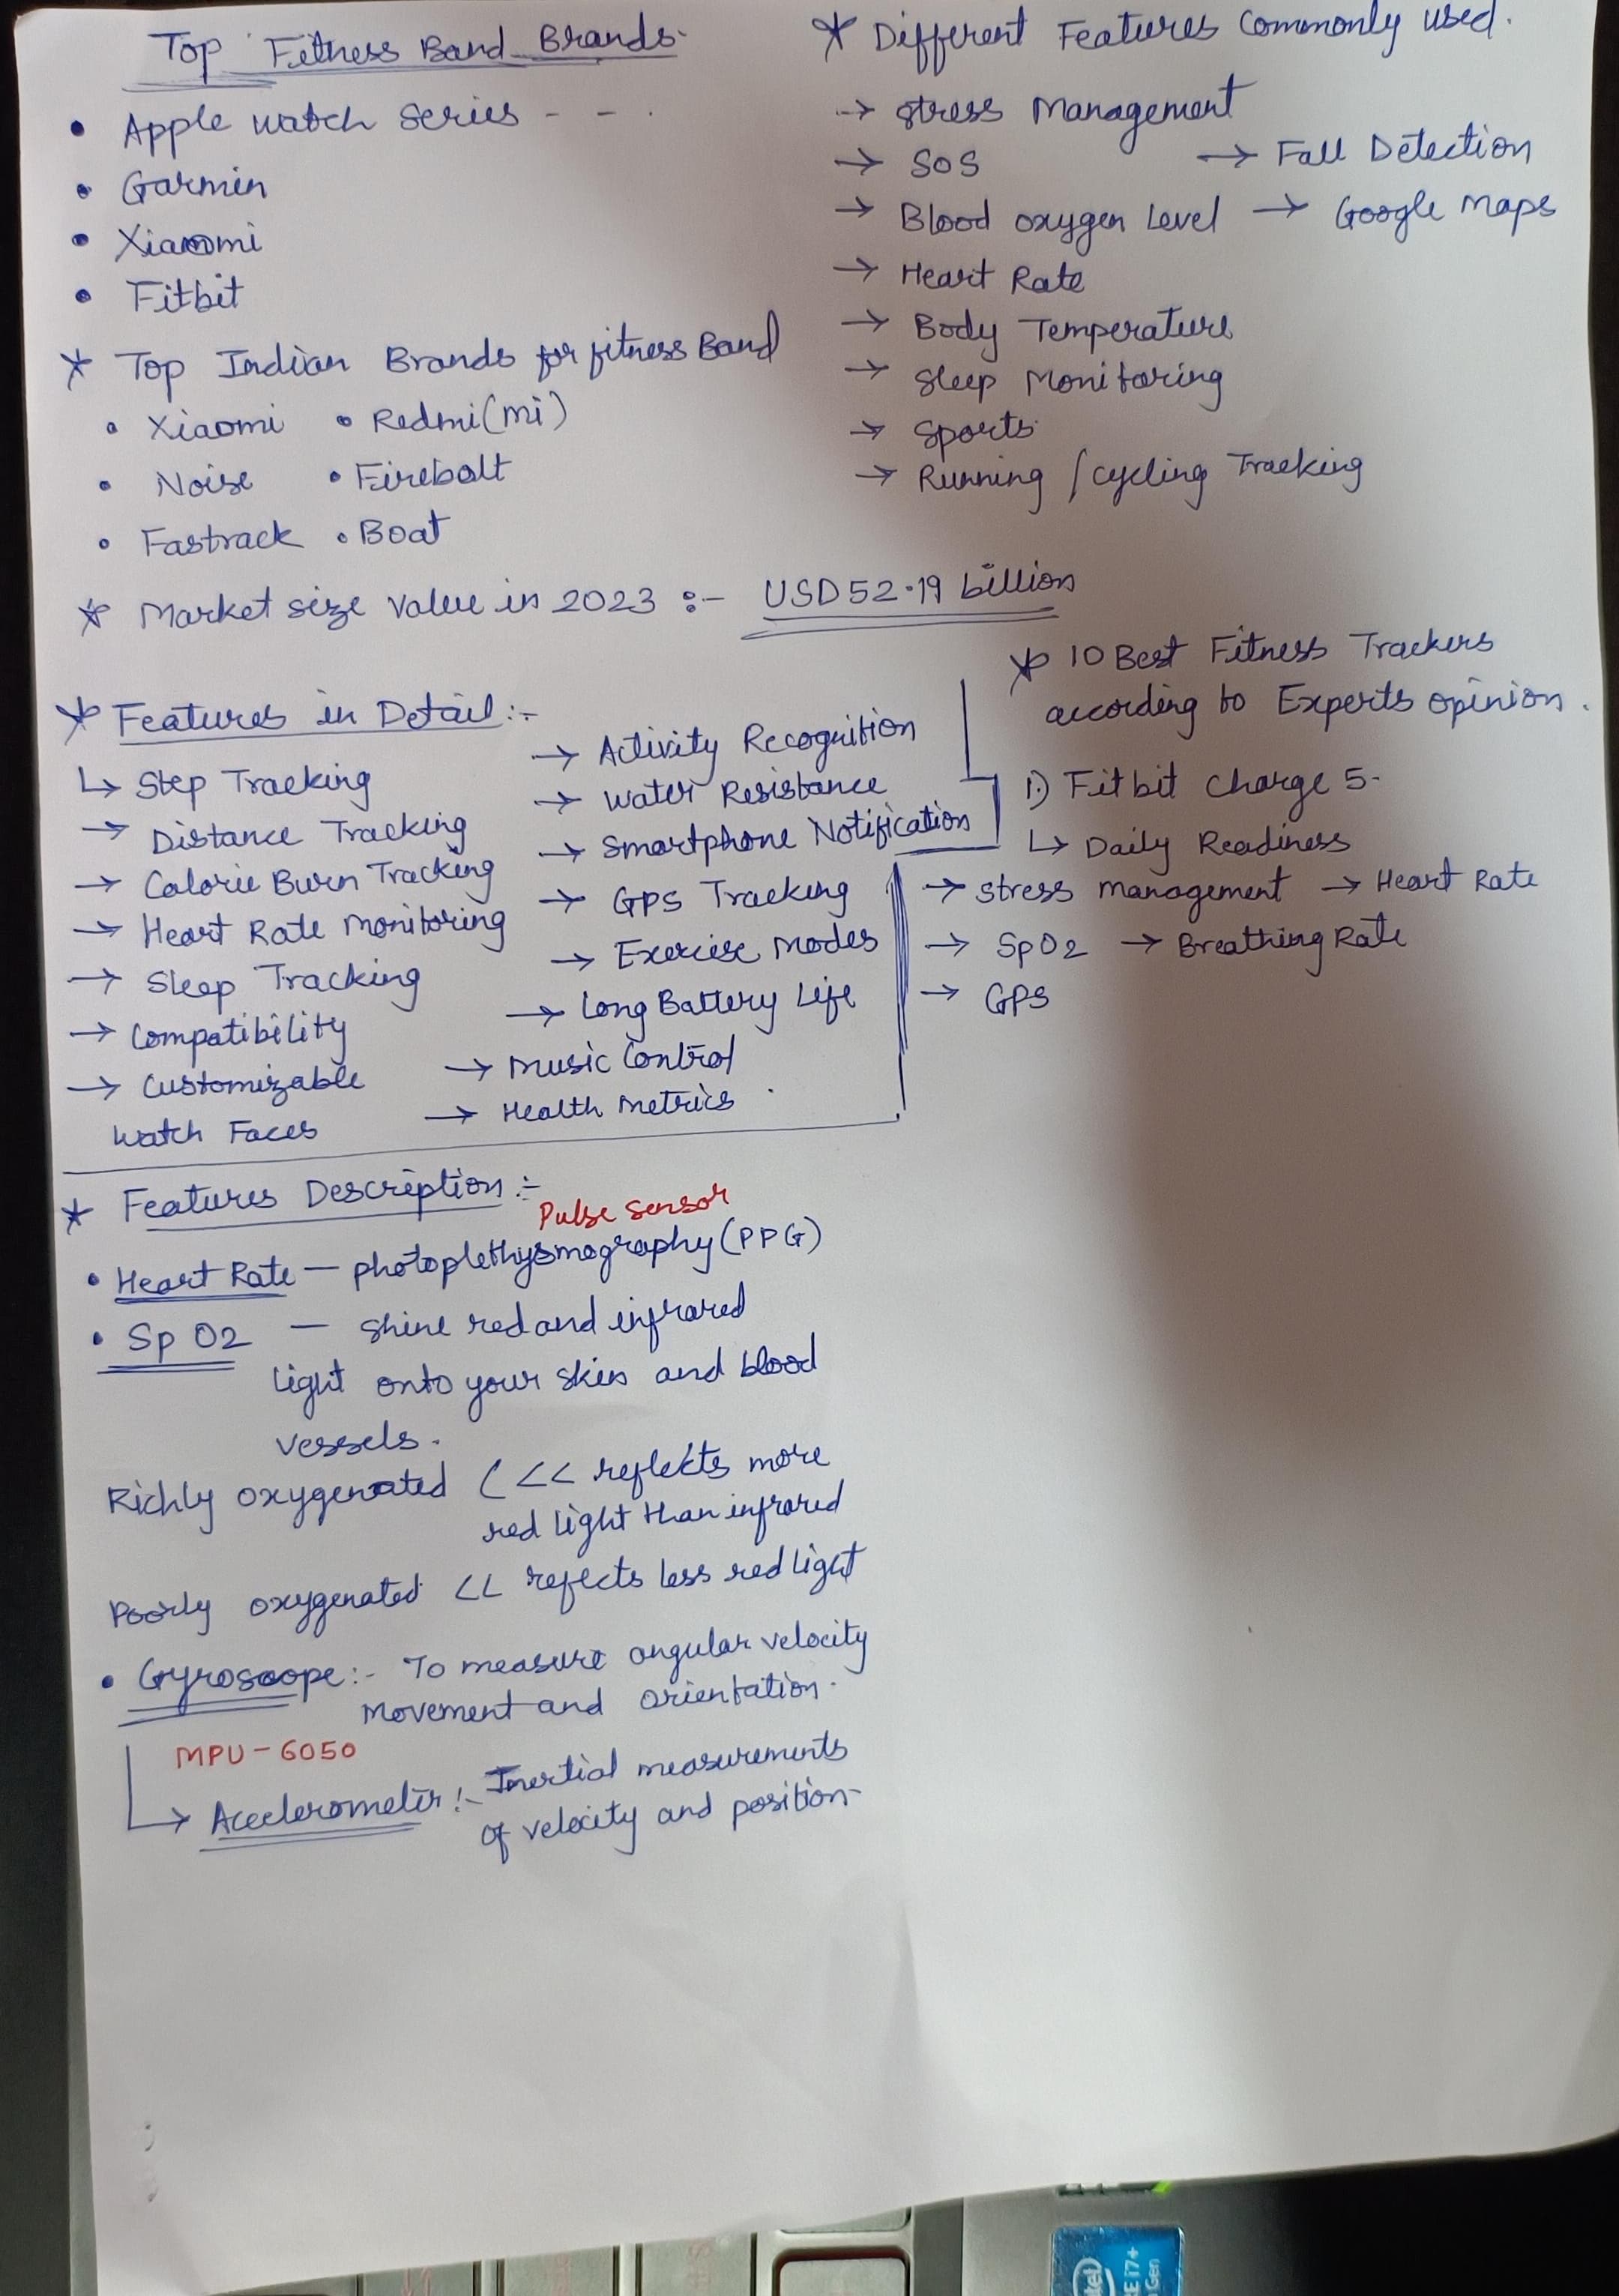 Top Fitness Band Brands
• Apple watch series - - .
• Garmin
• Xiaomi
• Fitbit
* Top Indian Brands for fitness Band
• Xiaomi • Redmi(mi)
• Noise • Firebolt
• Fastrack • Boat
* Market size value in 2023 :- USD 52.19 billion
* Different Features Commonly used.
→ Stress Management
→ SOS → Fall Detection
→ Blood oxygen Level → Google Maps
→ Heart Rate
→ Body Temperature
→ Sleep Monitoring
→ Sports
→ Running / cycling Tracking
* Features in Detail :-
↳ Step Tracking
→ Distance Tracking
→ Calorie Burn Tracking
→ Heart Rate Monitoring
→ Sleep Tracking
→ Compatibility
→ Customizable
Watch Faces
→ Activity Recognition
→ Water Resistance
→ Smartphone Notification
→ GPS Tracking
→ Exercise Modes
→ Long Battery Life
→ Music Control
→ Health Metrics
* 10 Best Fitness Trackers
according to Experts opinion.
1.) Fitbit Charge 5.
↳ Daily Readiness
→ Stress management → Heart Rate
→ SpO2 → Breathing Rate
→ GPS
* Features Description :-
Pulse Sensor
• Heart Rate — photoplethysmography (PPG)
• SpO2 — Shine red and infrared
light onto your skin and blood
vessels.
Richly oxygenated ( << reflects more
red light than infrared
Poorly oxygenated << reflects less red light
• Gyroscope :- To measure angular velocity
Movement and orientation.
MPU-6050
→ Accelerometer :- Inertial measurements
of velocity and position
intel
E i7+
Gen